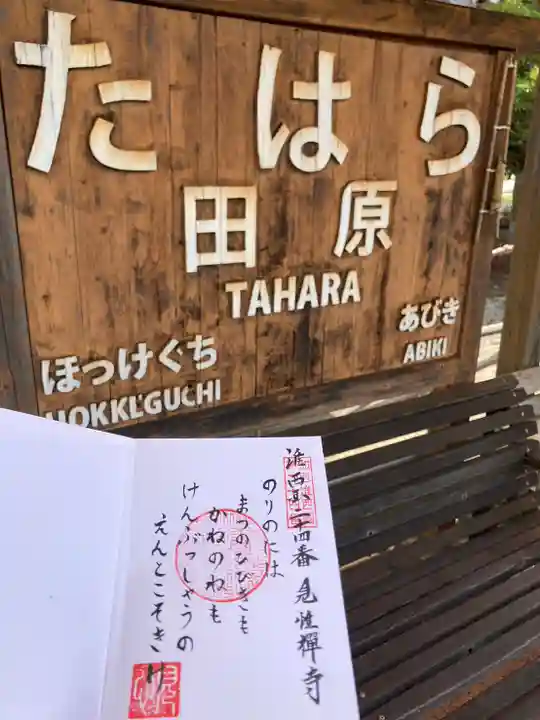 たはら
田原
TAHARA
ほっけぐち
HOKKEGUCHI
あびき
ABIKI
準西国二十四番 見性禅寺
のりのには
まつのひびきも
かねのねも
けんぶっしやうの
えんとこそきけ